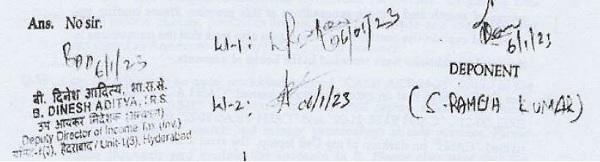 Ans. No sir.
6/1/23
W-1: 06/01/23
6/1/23
बी. दिनेश आदित्य, भा.रा.से.
B. DINESH ADITYA, I.R.S.
उप आयकर निदेशक (अन्वेषण)
Deputy Director of Income Tax (Inv.)
हैदराबाद / Unit-1(3), Hyderabad
W-2: 06/1/23
DEPONENT
(S. RAMESH KUMAR)